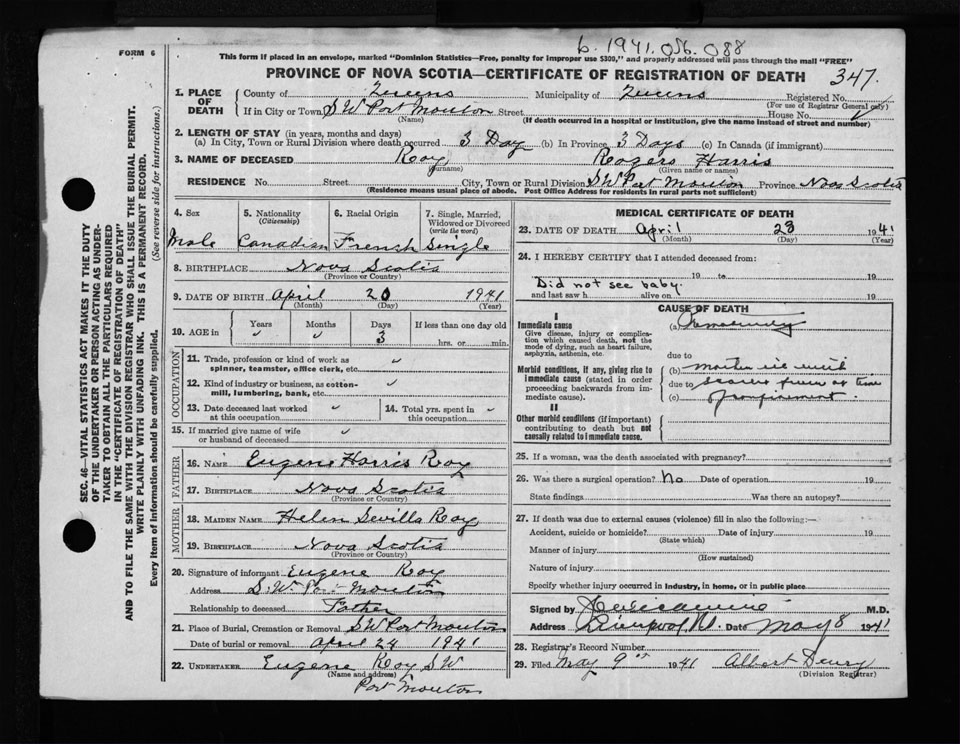 b. 1941. 056. 088
FORM 6
This form if placed in an envelope, marked "Dominion Statistics—Free, penalty for improper use $300," and properly addressed will pass through the mail "FREE"
PROVINCE OF NOVA SCOTIA—CERTIFICATE OF REGISTRATION OF DEATH 347.
1. PLACE OF DEATH
County of Queens Municipality of Queens Registered No.
(For use of Registrar General only)
If in City or Town, S W Port Mouton Street House No.
(Name) (If death occurred in a hospital or institution, give the name instead of street and number)
2. LENGTH OF STAY (in years, months and days)
(a) In City, Town or Rural Division where death occurred 3 Day (b) In Province 3 Days (c) In Canada (if immigrant)
3. NAME OF DECEASED Roy Rogers Harris
(Surname) (Given name or names)
RESIDENCE No. Street City, Town or Rural Division S W Port Mouton Province Nova Scotia
(Residence means usual place of abode. Post Office Address for residents in rural parts not sufficient)
4. Sex 5. Nationality (Citizenship) 6. Racial Origin 7. Single, Married, Widowed or Divorced (write the word)
Male Canadian French Single
8. BIRTHPLACE Nova Scotia
(Province or Country)
9. DATE OF BIRTH April 20 1941
(Month) (Day) (Year)
10. AGE in Years Months Days If less than one day old
3 hrs. or min.
OCCUPATION
11. Trade, profession or kind of work as spinner, teamster, office clerk, etc.
12. Kind of industry or business, as cotton-mill, lumbering, bank, etc.
13. Date deceased last worked at this occupation
14. Total yrs. spent in this occupation
15. If married give name of wife or husband of deceased
FATHER
16. NAME Eugene Harris Roy
17. BIRTHPLACE Nova Scotia
(Province or Country)
MOTHER
18. MAIDEN NAME Helen Sevilla Roy
19. BIRTHPLACE Nova Scotia
(Province or Country)
20. Signature of informant Eugene Roy
Address S. W. Port Mouton
Relationship to deceased Father
21. Place of Burial, Cremation or Removal S W Port Mouton
Date of burial or removal April 24 1941
22. UNDERTAKER Eugene Roy S W
(Name and address)
Port Mouton
MEDICAL CERTIFICATE OF DEATH
23. DATE OF DEATH April 23 1941
(Month) (Day) (Year)
24. I HEREBY CERTIFY that I attended deceased from:
19 to 19
Did not see baby.
and last saw h alive on 19
CAUSE OF DEATH
I
Immediate cause
Give disease, injury or complication which caused death, not the mode of dying, such as heart failure, asphyxia, asthenia, etc.
(a) Prematurity
due to
Morbid conditions, if any, giving rise to immediate cause (stated in order proceeding backwards from immediate cause).
(b)
due to
(c) of confinement.
II
Other morbid conditions (if important) contributing to death but not causally related to immediate cause.
25. If a woman, was the death associated with pregnancy?
26. Was there a surgical operation? No Date of operation 19
State findings Was there an autopsy?
27. If death was due to external causes (violence) fill in also the following:—
Accident, suicide or homicide? Date of injury 19
(State which)
Manner of injury
(How sustained)
Nature of injury
Specify whether injury occurred in industry, in home, or in public place
Signed by M.D.
Address Liverpool Date May 8 1941
28. Registrar's Record Number
29. Filed May 9th 1941 Albert
(Division Registrar)
SEC. 46—VITAL STATISTICS ACT MAKES IT THE DUTY OF THE UNDERTAKER OR PERSON ACTING AS UNDERTAKER TO OBTAIN ALL THE PARTICULARS REQUIRED IN THE "CERTIFICATE OF REGISTRATION OF DEATH" AND TO FILE THE SAME WITH THE DIVISION REGISTRAR WHO SHALL ISSUE THE BURIAL PERMIT. WRITE PLAINLY WITH UNFADING INK. THIS IS A PERMANENT RECORD.
Every item of information should be carefully supplied. (See reverse side for instructions.)